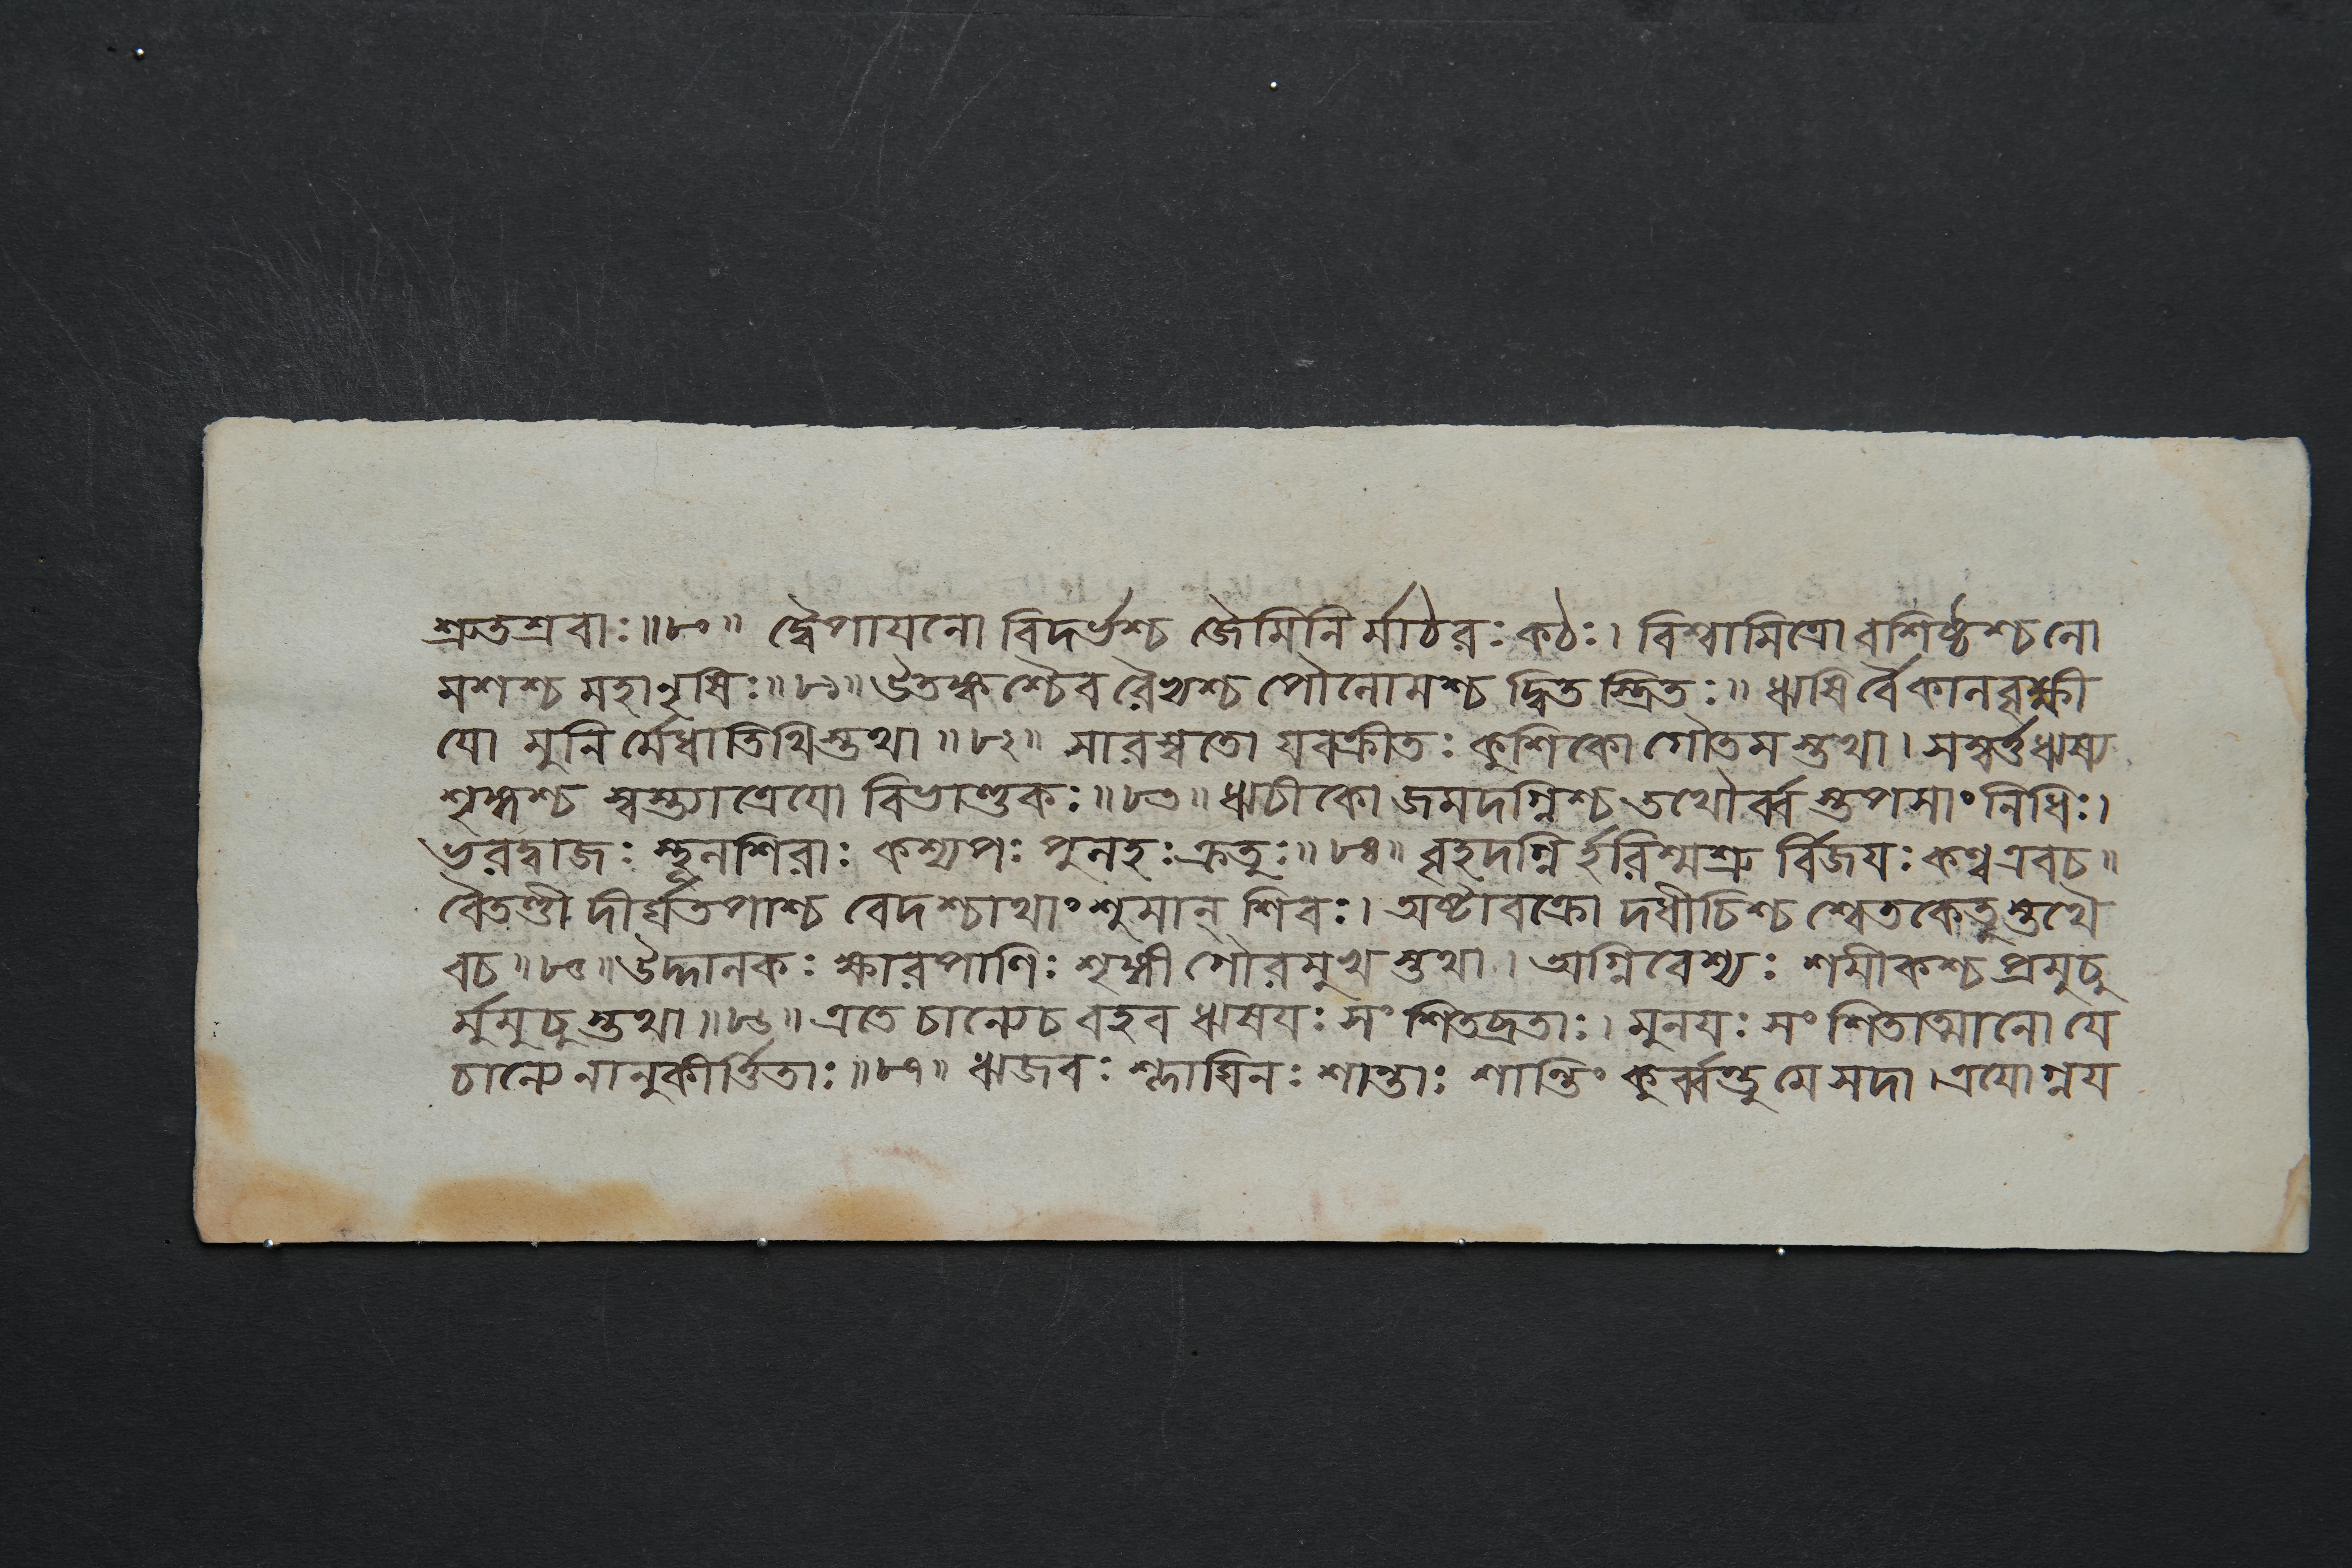 শ্রুতশ্রবাঃ॥৮০॥ দ্বৈপায়নো বিদর্ভশ্চ জৈমিনি র্মাঠরঃ কঠঃ। বিশ্বামিত্রো বশিষ্ঠশ্চ লো
মশশ্চ মহানৃষিঃ॥৮১॥ উতঙ্কশ্চৈব রৈভ্যশ্চ পৌলোমশ্চ দ্বিত স্ত্রিতঃ॥ ঋষির্বৈ কালবৃক্ষী
যো মুনি র্মেধাতিথিস্তথা॥৮২॥ সারস্বতো যবক্রীতঃ কুশিকো গৌতম স্তথা। সম্বর্ত্ত ঋষ্য
শৃঙ্গশ্চ স্বস্ত্যাত্রেযো বিভাণ্ডকঃ॥৮৩॥ ঋচীকো জমদগ্নিশ্চ তথৌর্ব্ব স্তপসাং নিধিঃ।
ভরদ্বাজঃ স্থূলশিরাঃ কশ্যপঃ পুলহঃ ক্রতুঃ॥৮৪॥ বৃহদগ্নি র্হরিশ্মশ্রু র্বিজযঃ কণ্ব এবচ॥
বৈতণ্ডী দীর্ঘতপাশ্চ বেদশ্চাথাংশুমান্ শিবঃ। অষ্টাবক্রো দধীচিশ্চ শ্বেতকেতুস্তথৈ
বচ॥৮৫॥ উদ্দালকঃ ক্ষারপাণিঃ শৃঙ্গী গৌরমুখ স্তথা। অগ্নিবেশ্যঃ শমীকশ্চ প্রমুচু
র্মুমুচু স্তথা॥৮৬॥ এতে চান্যেচ বহব ঋষযঃ সংশিতব্রতাঃ। মুনযঃ সংশিতাত্মানো যে
চান্যে নানুকীর্ত্তিতাঃ॥৮৭॥ ঋজবঃ শ্লাঘিনঃ শান্তাঃ শান্তিং কুর্ব্বন্তু মে সদা। এযোগ্নয